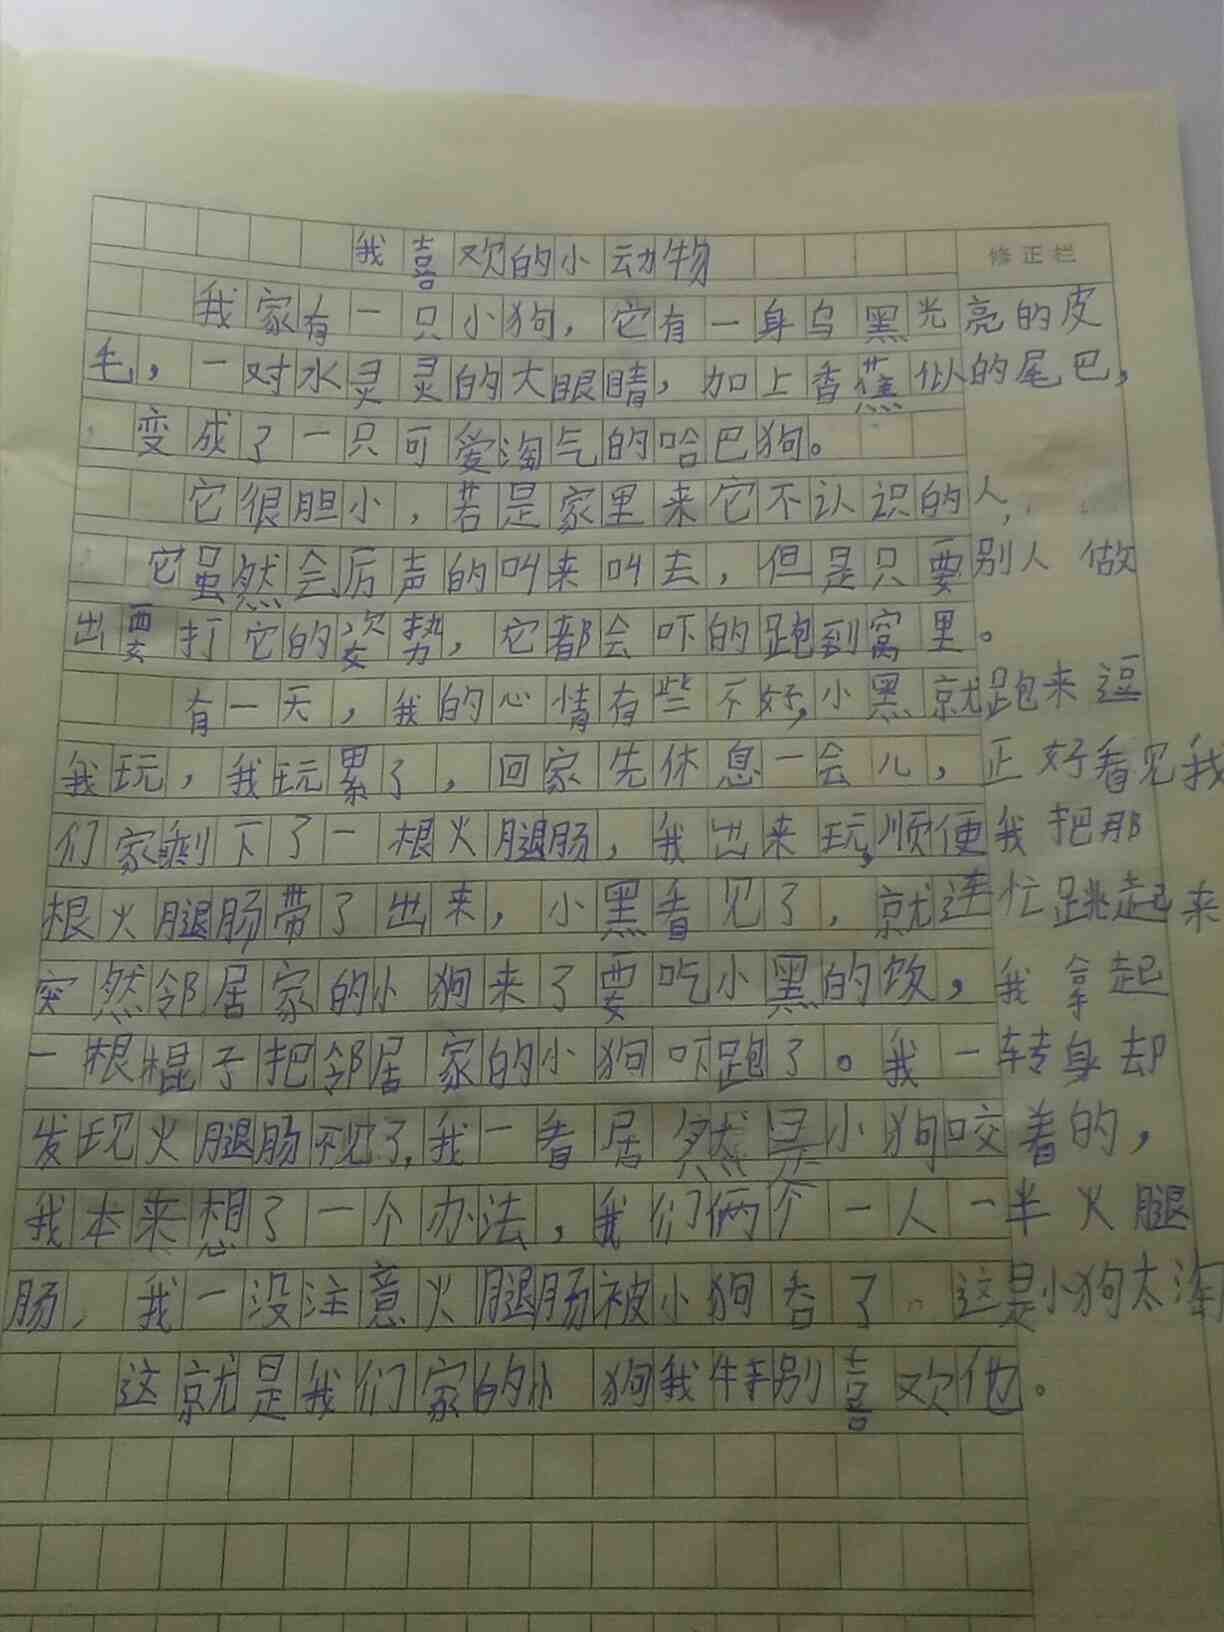 我喜欢的小动物
修正栏
我家有一只小狗，它有一身乌黑光亮的皮
毛，一对水灵灵的大眼睛，加上香蕉似的尾巴，
变成了一只可爱淘气的哈巴狗。
它很胆小，若是家里来它不认识的人，
它虽然会厉声的叫来叫去，但是只要别人做
出要打它的姿势，它都会吓的跑到窝里。
有一天，我的心情有些不好，小黑就跑来逗
我玩，我玩累了，回家先休息一会儿，正好看见我
们家剩下了一根火腿肠，我出来玩，顺便我把那
根火腿肠带了出来，小黑看见了，就连忙跳起来
突然邻居家的小狗来了要吃小黑的饮，我拿起
一根棍子把邻居家的小狗吓跑了。我一转身却
发现火腿肠不见了，我一看居然是小狗咬着的，
我本来想了一个办法，我们俩个一人一半火腿
肠，我一没注意火腿肠被小狗吞了，这是小狗太淘
这就是我们家的小狗我特别喜欢他。